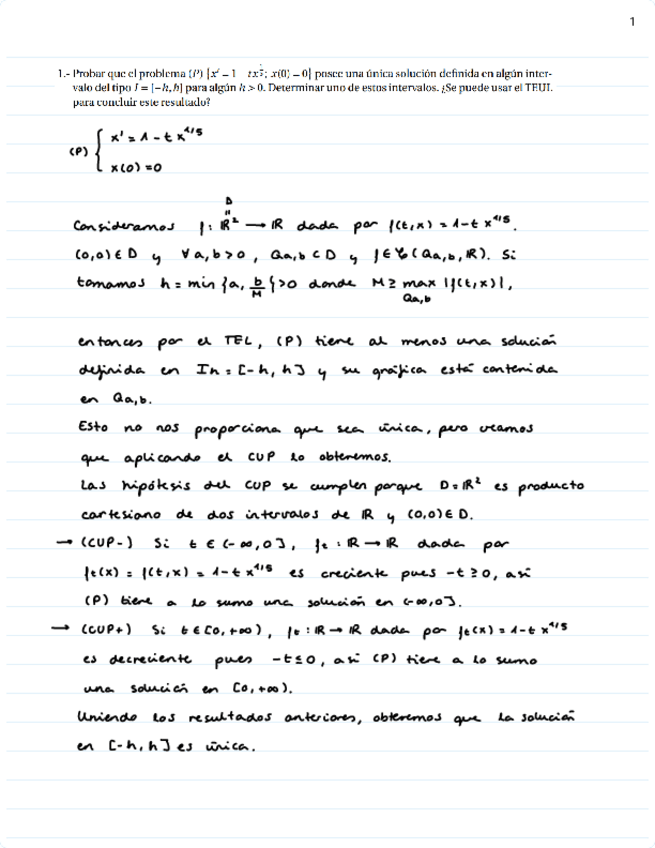 1
1.- Probar que el problema (P) {x' = 1 − tx^{1/5}; x(0) = 0} posee una única solución definida en algún inter-
valo del tipo I = [−h, h] para algún h > 0. Determinar uno de estos intervalos. ¿Se puede usar el TEUL
para concluir este resultado?
(P) { x' = 1 - t x^{1/5}
x(0) = 0
D
=
Consideramos f: ℝ² → ℝ dada por f(t,x) = 1 - t x^{1/5}.
(0,0) ∈ D y ∀a,b>0, Qa,b ⊂ D y f ∈ C(Qa,b, ℝ). Si
tomamos h = min {a, b/M} > 0 donde M ≥ max |f(t,x)|,
Qa,b
entonces por el TEL, (P) tiene al menos una solución
definida en Ih = [-h, h] y su gráfica está contenida
en Qa,b.
Esto no nos proporciona que sea única, pero veamos
que aplicando el CUP lo obtenemos.
Las hipótesis del CUP se cumplen porque D = ℝ² es producto
cartesiano de dos intervalos de ℝ y (0,0) ∈ D.
→ (CUP-) Si t ∈ (-∞, 0], ft : ℝ → ℝ dada por
ft(x) = f(t,x) = 1 - t x^{1/5} es creciente pues -t ≥ 0, así
(P) tiene a lo sumo una solución en (-∞, 0].
→ (CUP+) Si t ∈ [0, +∞), ft : ℝ → ℝ dada por ft(x) = 1 - t x^{1/5}
es decreciente pues -t ≤ 0, así (P) tiene a lo sumo
una solución en [0, +∞).
Uniendo los resultados anteriores, obtenemos que la solución
en [-h, h] es única.